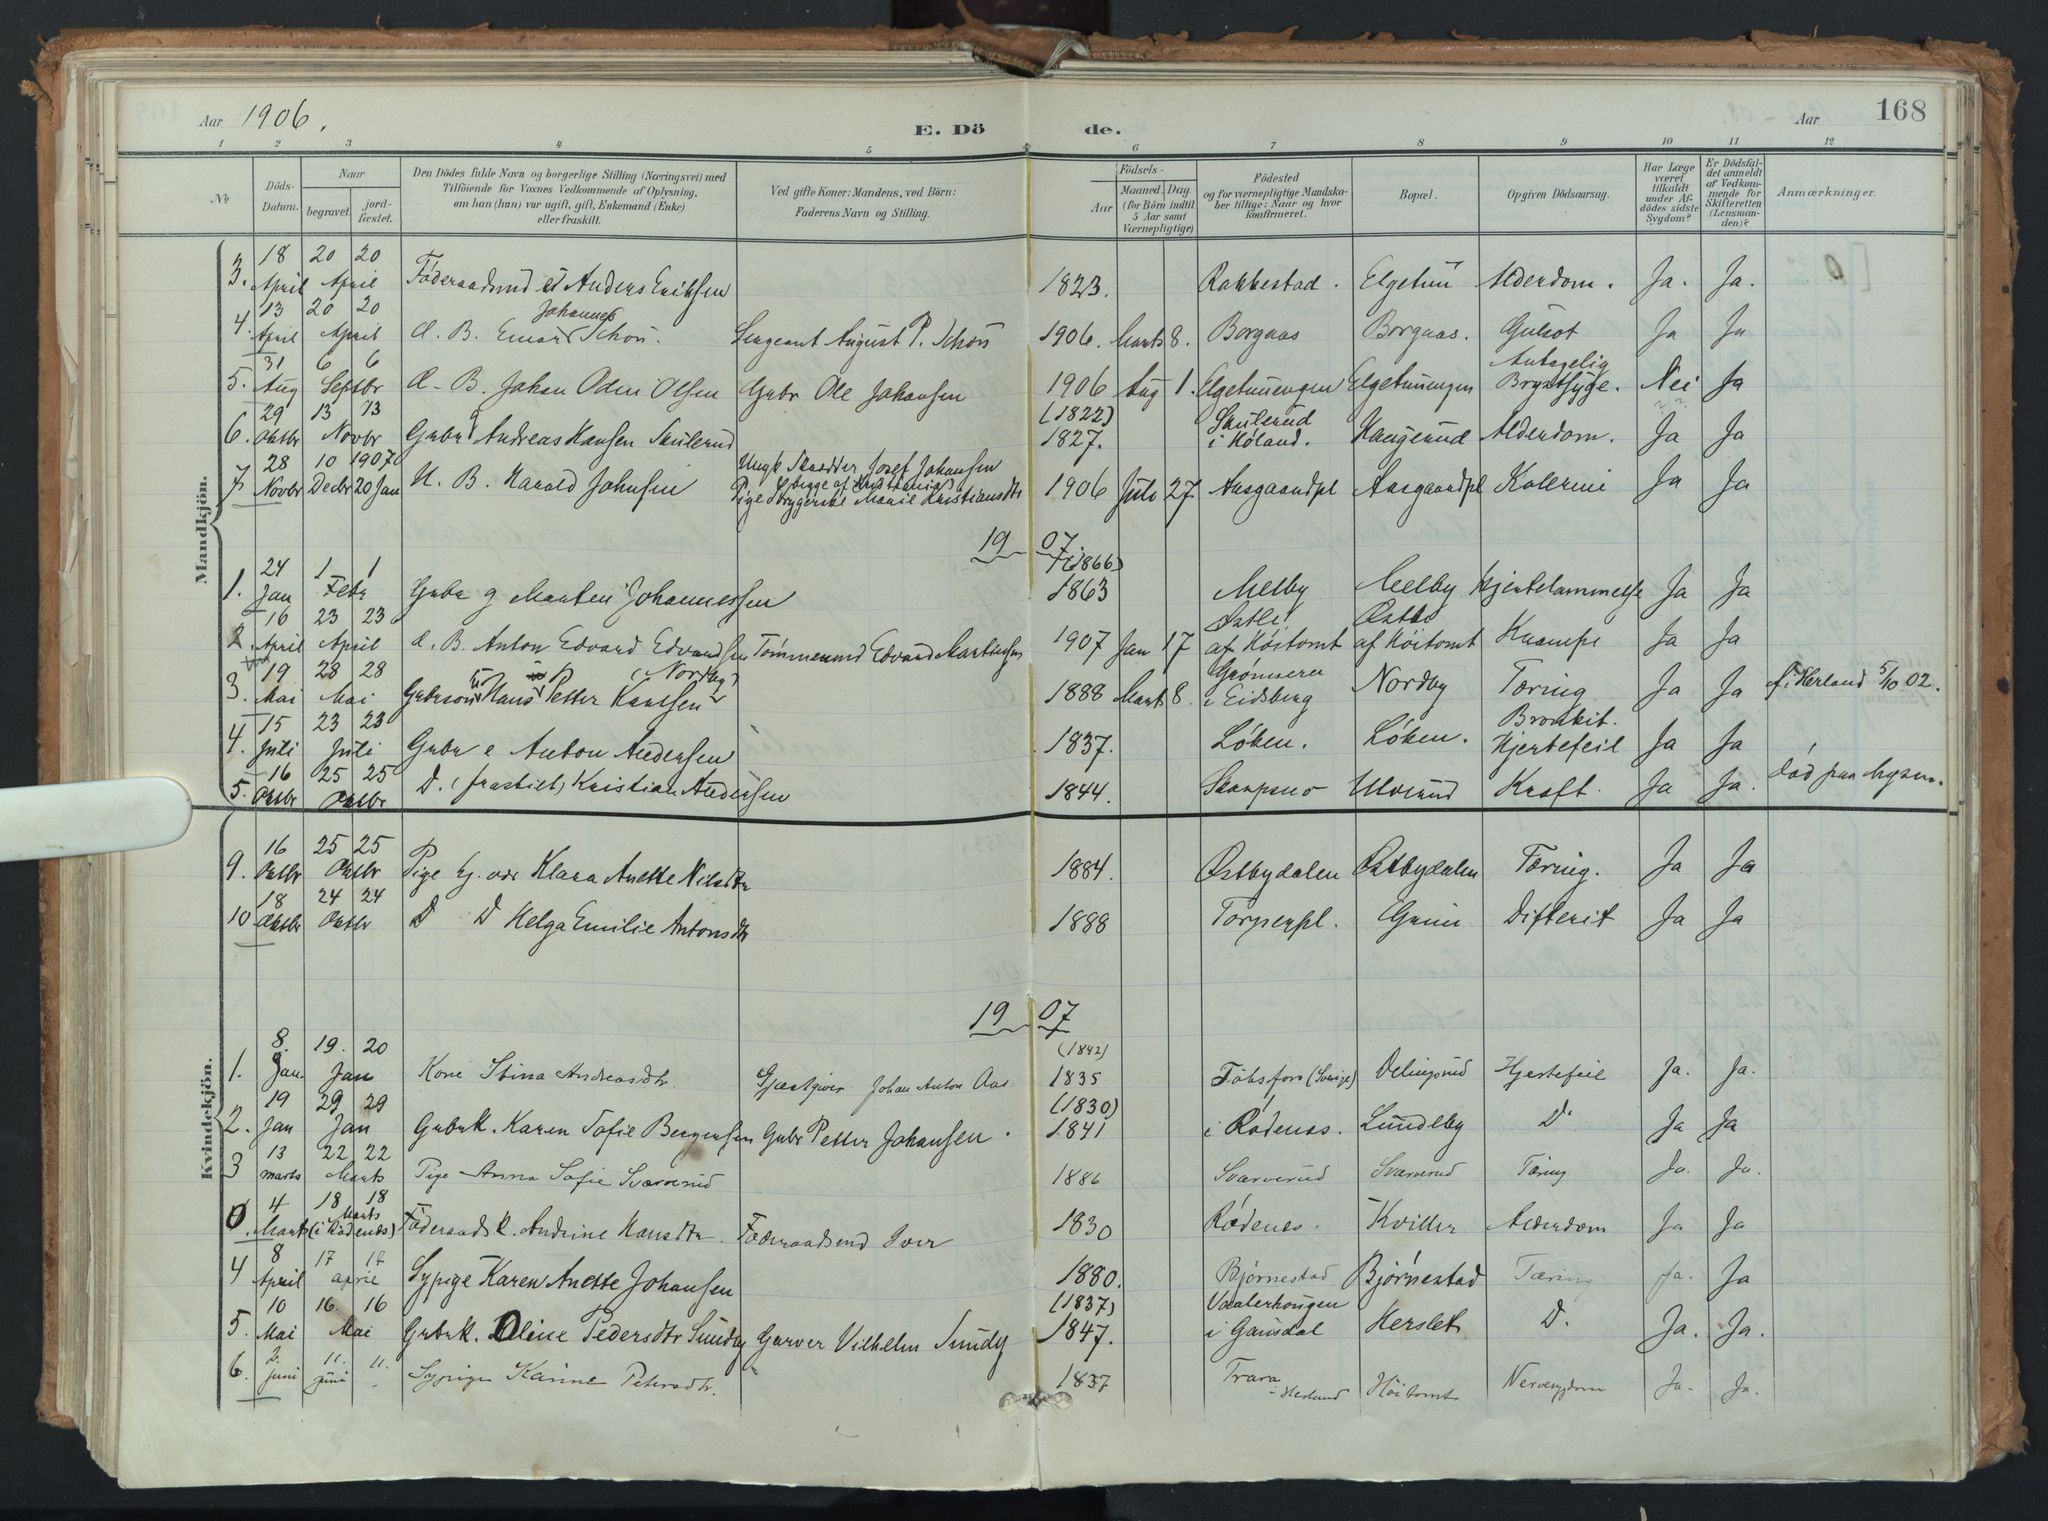 Aar 1906. E. Dö de. Aar 168
1 2 3 4 5 6 7 8 9 10 11 12
No Döds-Datum. Naar begravet. jord-fæstet. Den Dödes fulde Navn og borgerlige Stilling (Næringsvei) med Tilföiende for Voxnes Vedkommende af Oplysning, om han (hun) var ugift, gift, Enkemand (Enke) eller fraskilt. Ved gifte Koner: Mandens, ved Börn: Faderens Navn og Stilling. Födsels- Aar Maaned Dag (for Börn indtil 5 Aar samt Værnepligtige) Födested og for værnepligtige Mandskaber tillige: Naar og hvor konfirmeret. Bopæl. Opgiven Dödsaarsag. Har Læge været tilkaldt under Afdödes sidste Sygdom? Er Dödsfaldet anmeldt af Vedkommende for Skifteretten (Lensmanden)? Anmærkninger.
Mandkjön.
3. 18 April 20 April 20 Föderaadsmd Anders Eriksen 1823. Rakkestad. Elgetun Alderdom. Ja. Ja.
4. 13 April 20 April 20 d. B. Einar Johannes Schou. Sergeant August P. Schou 1906. Marts 8. Borgaas Borgaas. Gulsot Ja Ja
5. 31 Aug 6 Septbr 6 d. B. Johan Oden Olsen Gubr Ole Johansen 1906 Aug 1. Elgetunengen Elgetunengen Antagelig Brystsyge. Nei Ja
6. 29 Oktbr 13 Novbr 13 Gubr Andreas Hansen Skulerud (1822) 1827. Skulerud i Høland. Haugerud Alderdom. Ja Ja
7. 28 Novbr 10 Decbr 1907 20 Jan U. B. Harald Johnsen Ungk. Skrædder Josef Johansen (begge af Kristiania) Pige Bryggerske Marie Kristiansdtr 1906 Juli 27 Aasgaardpl Aasgaardpl Kolerine Ja Ja
19 07
1. 24 Jan 1 Febr 1 Gubr g Marten Johannessen (1866) 1863 Melby Melby Hjertelammelse Ja Ja
2. 16 April 23 April 23 d. B. Anton Edvard Edvardsen Tømmermd Edvard Martinsen 1907 Jan 17 Østli af Høitomt Østbø af Høitomt Krampe Ja Ja
3. 19 Mai 28 Mai 28 Gubrsøn Hans Petter Hansen (Nordby) 1888 Marts 8. i Eidsberg Nordby Tæring Ja Ja i Herland 5/10 02.
4. 15 Juli 23 Juli 23 Gubr e Anton Andersen 1837. Løken. Løken. Bronkit. Hjertefeil Ja Ja
5. 16 Oktbr 25 Oktbr 25 D. (fraskilt) Kristian Andersen 1844. Skarpsno Ulverud Kræft. Ja Ja. død paa
Kvindekjön.
9. 16 Oktbr 25 Oktbr 25 Pige Klara Anette Nilsdtr 1884. Østbydalen Østbydalen Tæring. Ja Ja
10. 18 Oktbr 24 Oktbr 24 D D Helga Emilie Antonsdtr 1888 Torperpl. Grim Difterit Ja Ja
19 07
1. 8. Jan. 19. Jan 20 Kone Stina Andreasdtr. Gjæstgiver Johan Anton Aas (1842) 1835 (Sverige) Hjertefeil Ja. Ja.
2. 19 Jan 29 Jan 29 Gubrk. Karen Sofie Bergersen Gubr Petter Johansen. (1830) 1841 i Rødenæs. Lundeby D. Ja Ja
3 13 marts 22 Marts 22 Pige Anna Sofie Svarverud 1886 Svarverud Svarverud Tæring Ja. Ja.
0. 4 Marts 18 Marts 18 (i Rødenæs) Föderaadsk. Andrine Hansdtr. Föderaadsmd Iver 1830 Rødenes. Kviller Alderdom Ja Ja
4 8 April 17 april 17 Sypige Karen Anette Johansen 1880. Bjørnestad Bjørnestad Tæring Ja. Ja
5. 10 Mai 16. Mai 16 Gubrk. Oline Pedersdtr Sundby Garver Vilhelm Sundby (1837) 1847. Vaalerhougen i Gausdal Herslet D. Ja. Ja.
6. 2. juni 11. juni 11. Sypige Karine Petersdtr. 1837 Trara i Herland Høitomt Nervesygdom Ja. Ja.